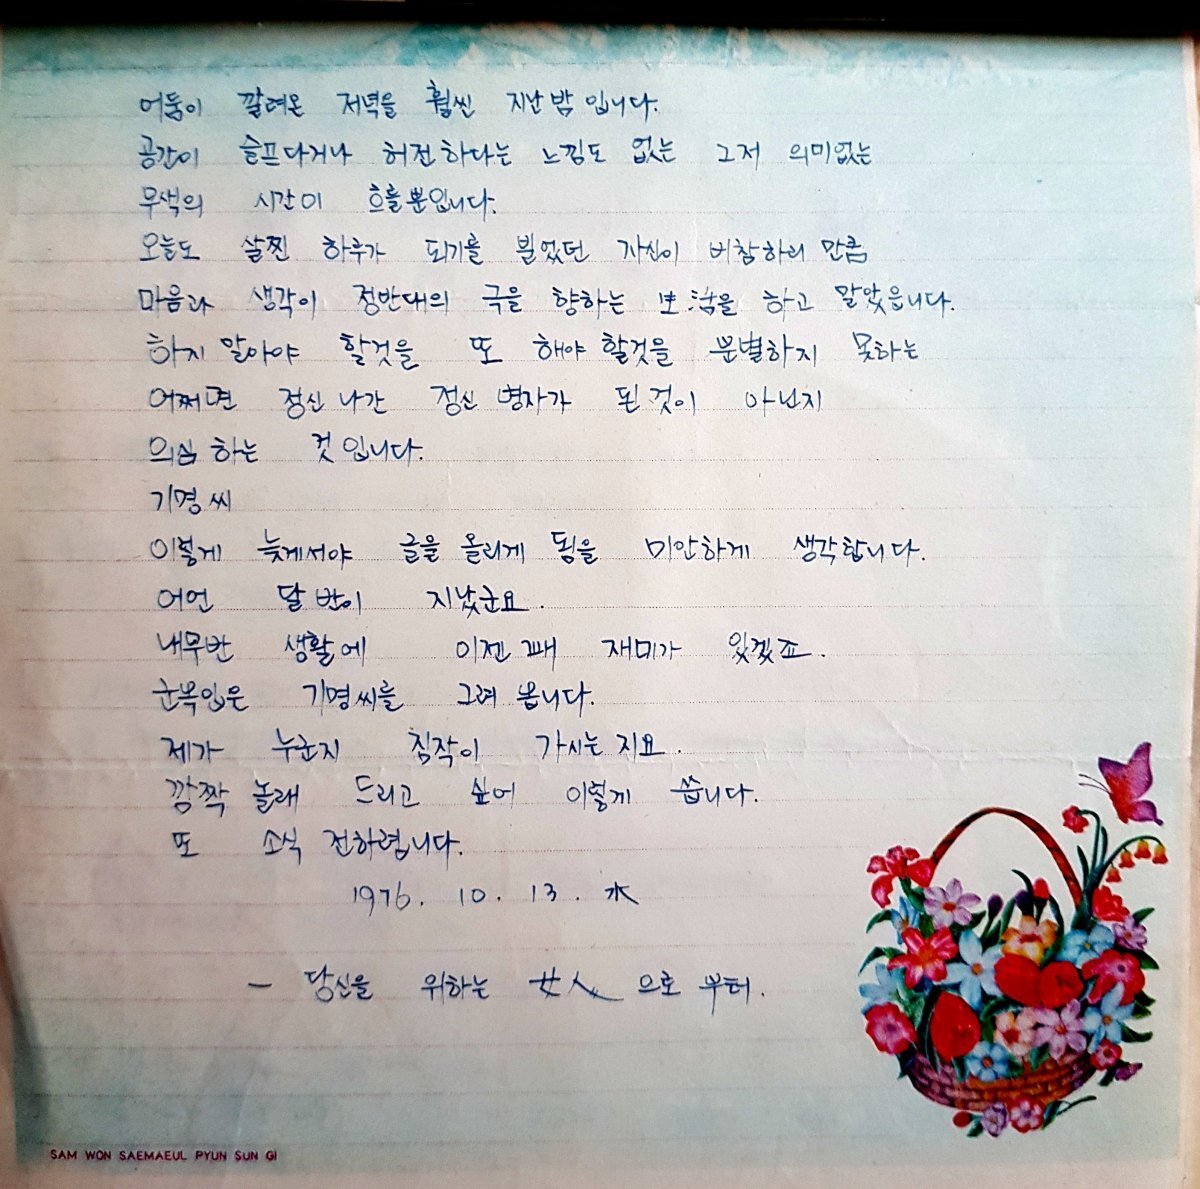 어둠이 깔려온 저녁을 훨씬 지난 밤 입니다.
공간이 슬프다거나 허전하다는 느낌도 없는 그저 의미없는
무색의 시간이 흐를뿐입니다.
오늘도 살찐 하루가 되기를 빌었던 자신이 비참하리 만큼
마음과 생각이 정반대의 극을 향하는 보챔을 하고 말았읍니다.
하지 말아야 할것을 또 해야 할것을 분별하지 못하는
어쩌면 정신 나간 정신 병자가 된 것이 아닌지
의심 하는 것 입니다.
기명씨
이렇게 늦게서야 글을 올리게 됨을 미안하게 생각합니다.
어언 달 반이 지났군요.
내무반 생활에 이젠 꽤 재미가 있겠죠.
군복입은 기명씨를 그려 봅니다.
제가 누군지 짐작이 가시는지요.
깜짝 놀래 드리고 싶어 이렇게 씁니다.
또 소식 전하렵니다.
1976. 10. 13. 水
- 당신을 위하는 女人 으로 부터.
SAM WON SAEMAEUL PYUN SUN GI